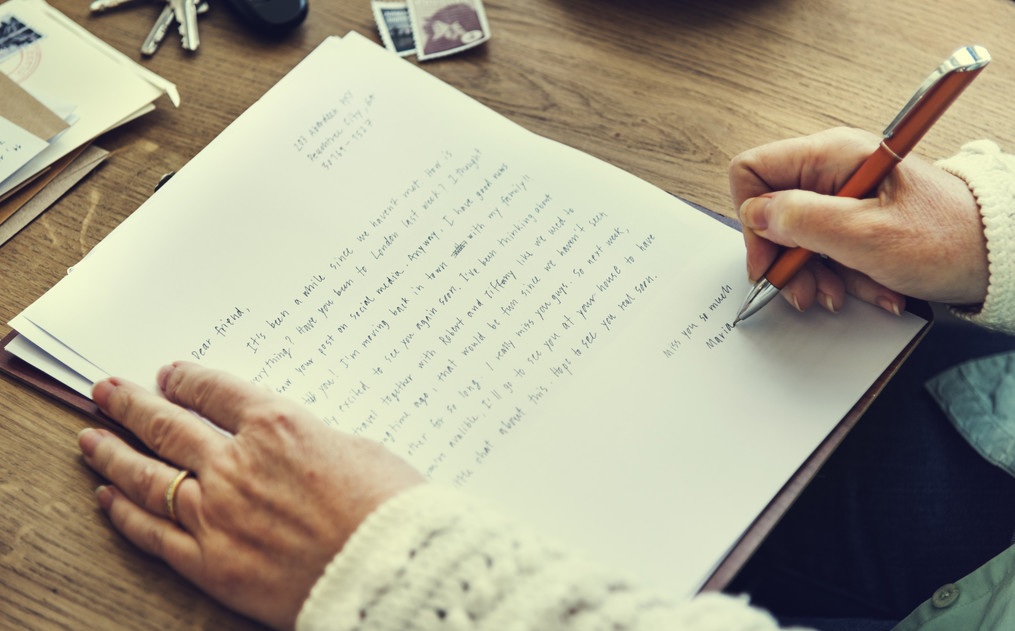 Dear friend,
It's been a while since we haven't met. How is
everything? Have you been to London last week? I thought
saw your post on social media. Anyway, I have good news
you! I'm moving back in town with my family!!
excited to see you again soon. I've been thinking about
travel together with Robert and Tiffany like we used to
longtime ago, that would be fun since we haven't seen
other for so long. I really miss you guys. So next week,
avalible. I'll go to see you at your house to have
little chat about this. Hope to see you real soon.
Miss you so much
Maria